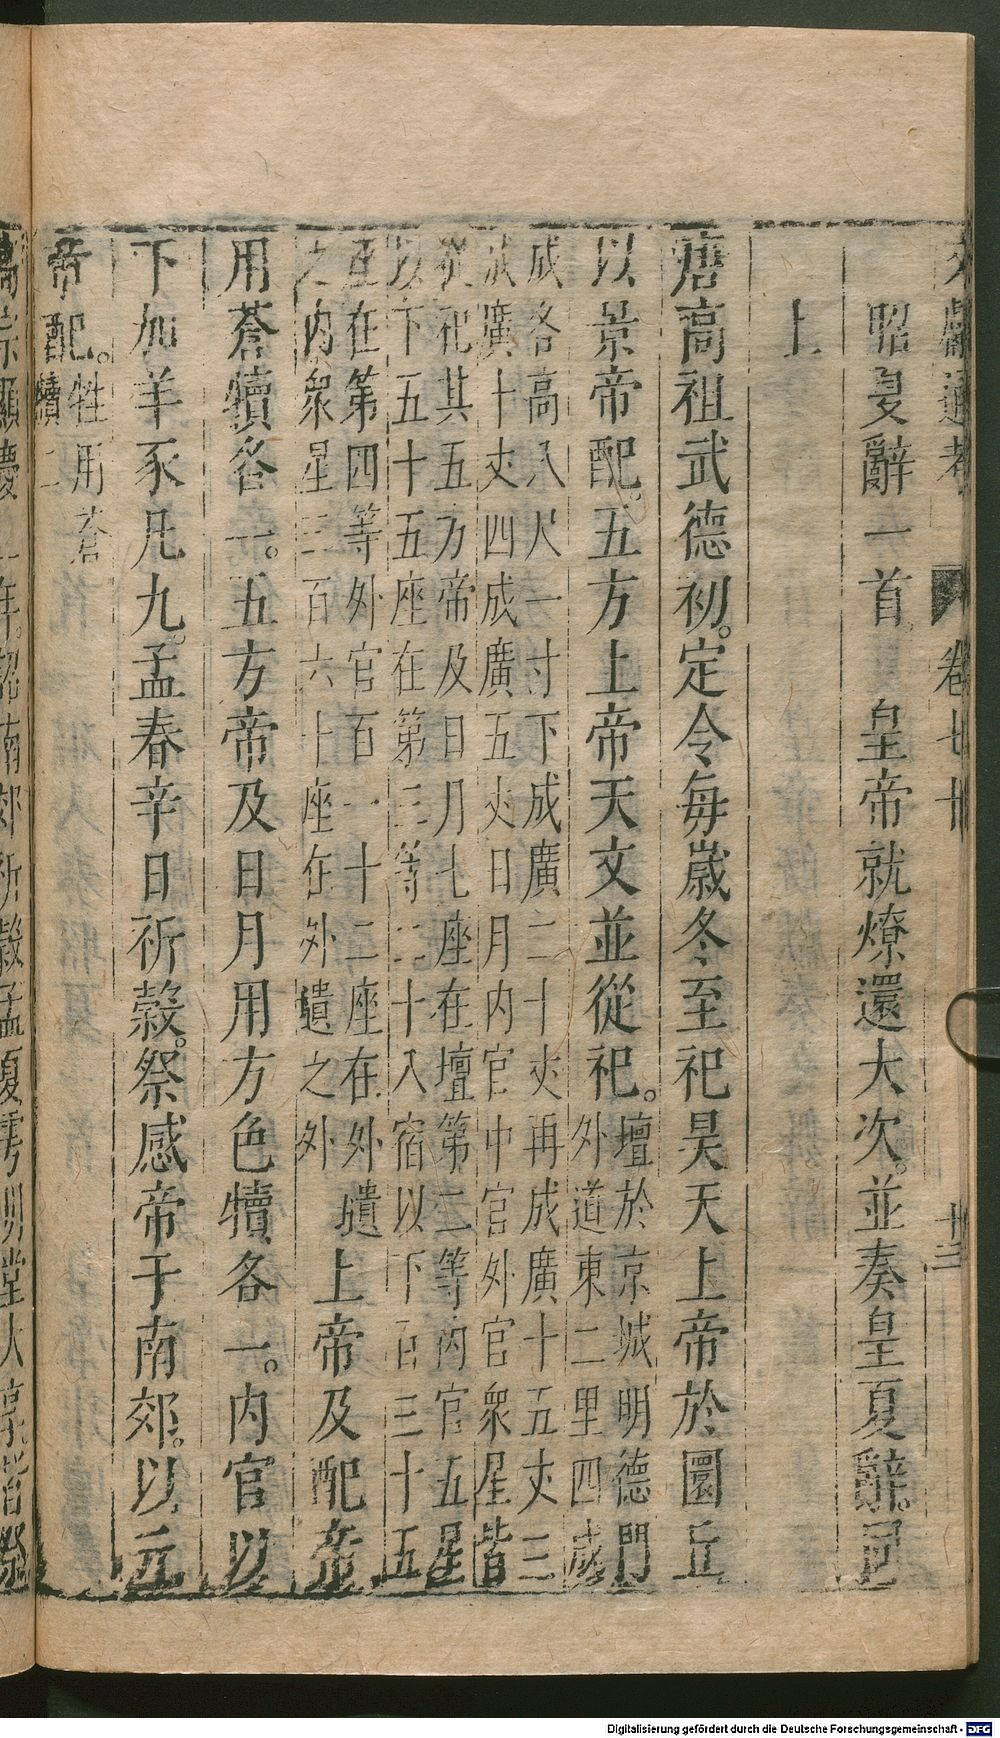 文獻通考　卷七十　十三
昭夏辭一首。　皇帝就燎還大次。並奏皇夏辭。同
上
唐高祖武德初。定令每歲冬至祀昊天上帝於圜丘
以景帝配。五方上帝天文並從祀。壇於京城明德門
外道東二里四成
成各高八尺一寸下成廣二十丈再成廣十五丈三
成廣十丈四成廣五丈日月內官中官外官衆星皆
從祀其五方帝及日月七座在壇第二等內官五星
以下五十五座在第三等二十八宿以下百三十五
座在第四等外官百一十二座在外壝
之內衆星三百六十座在外壝之外
上帝及配帝
用蒼犢各一。五方帝及日月用方色犢各一。內官以
下加羊豕凡九。孟春辛日祈穀。祭感帝于南郊。以元
帝配。牲用蒼
犢二
二年。詔南郊祈穀孟夏雩明堂大享皆祭